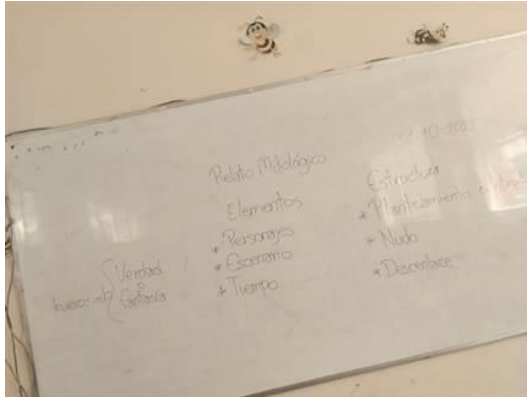 Relato Mitológico
Elementos
* Personajes
* Escenario
* Tiempo
Verdad
o
Fantasía
Estructura
* Planteamiento o
* Nudo
* Descenlace